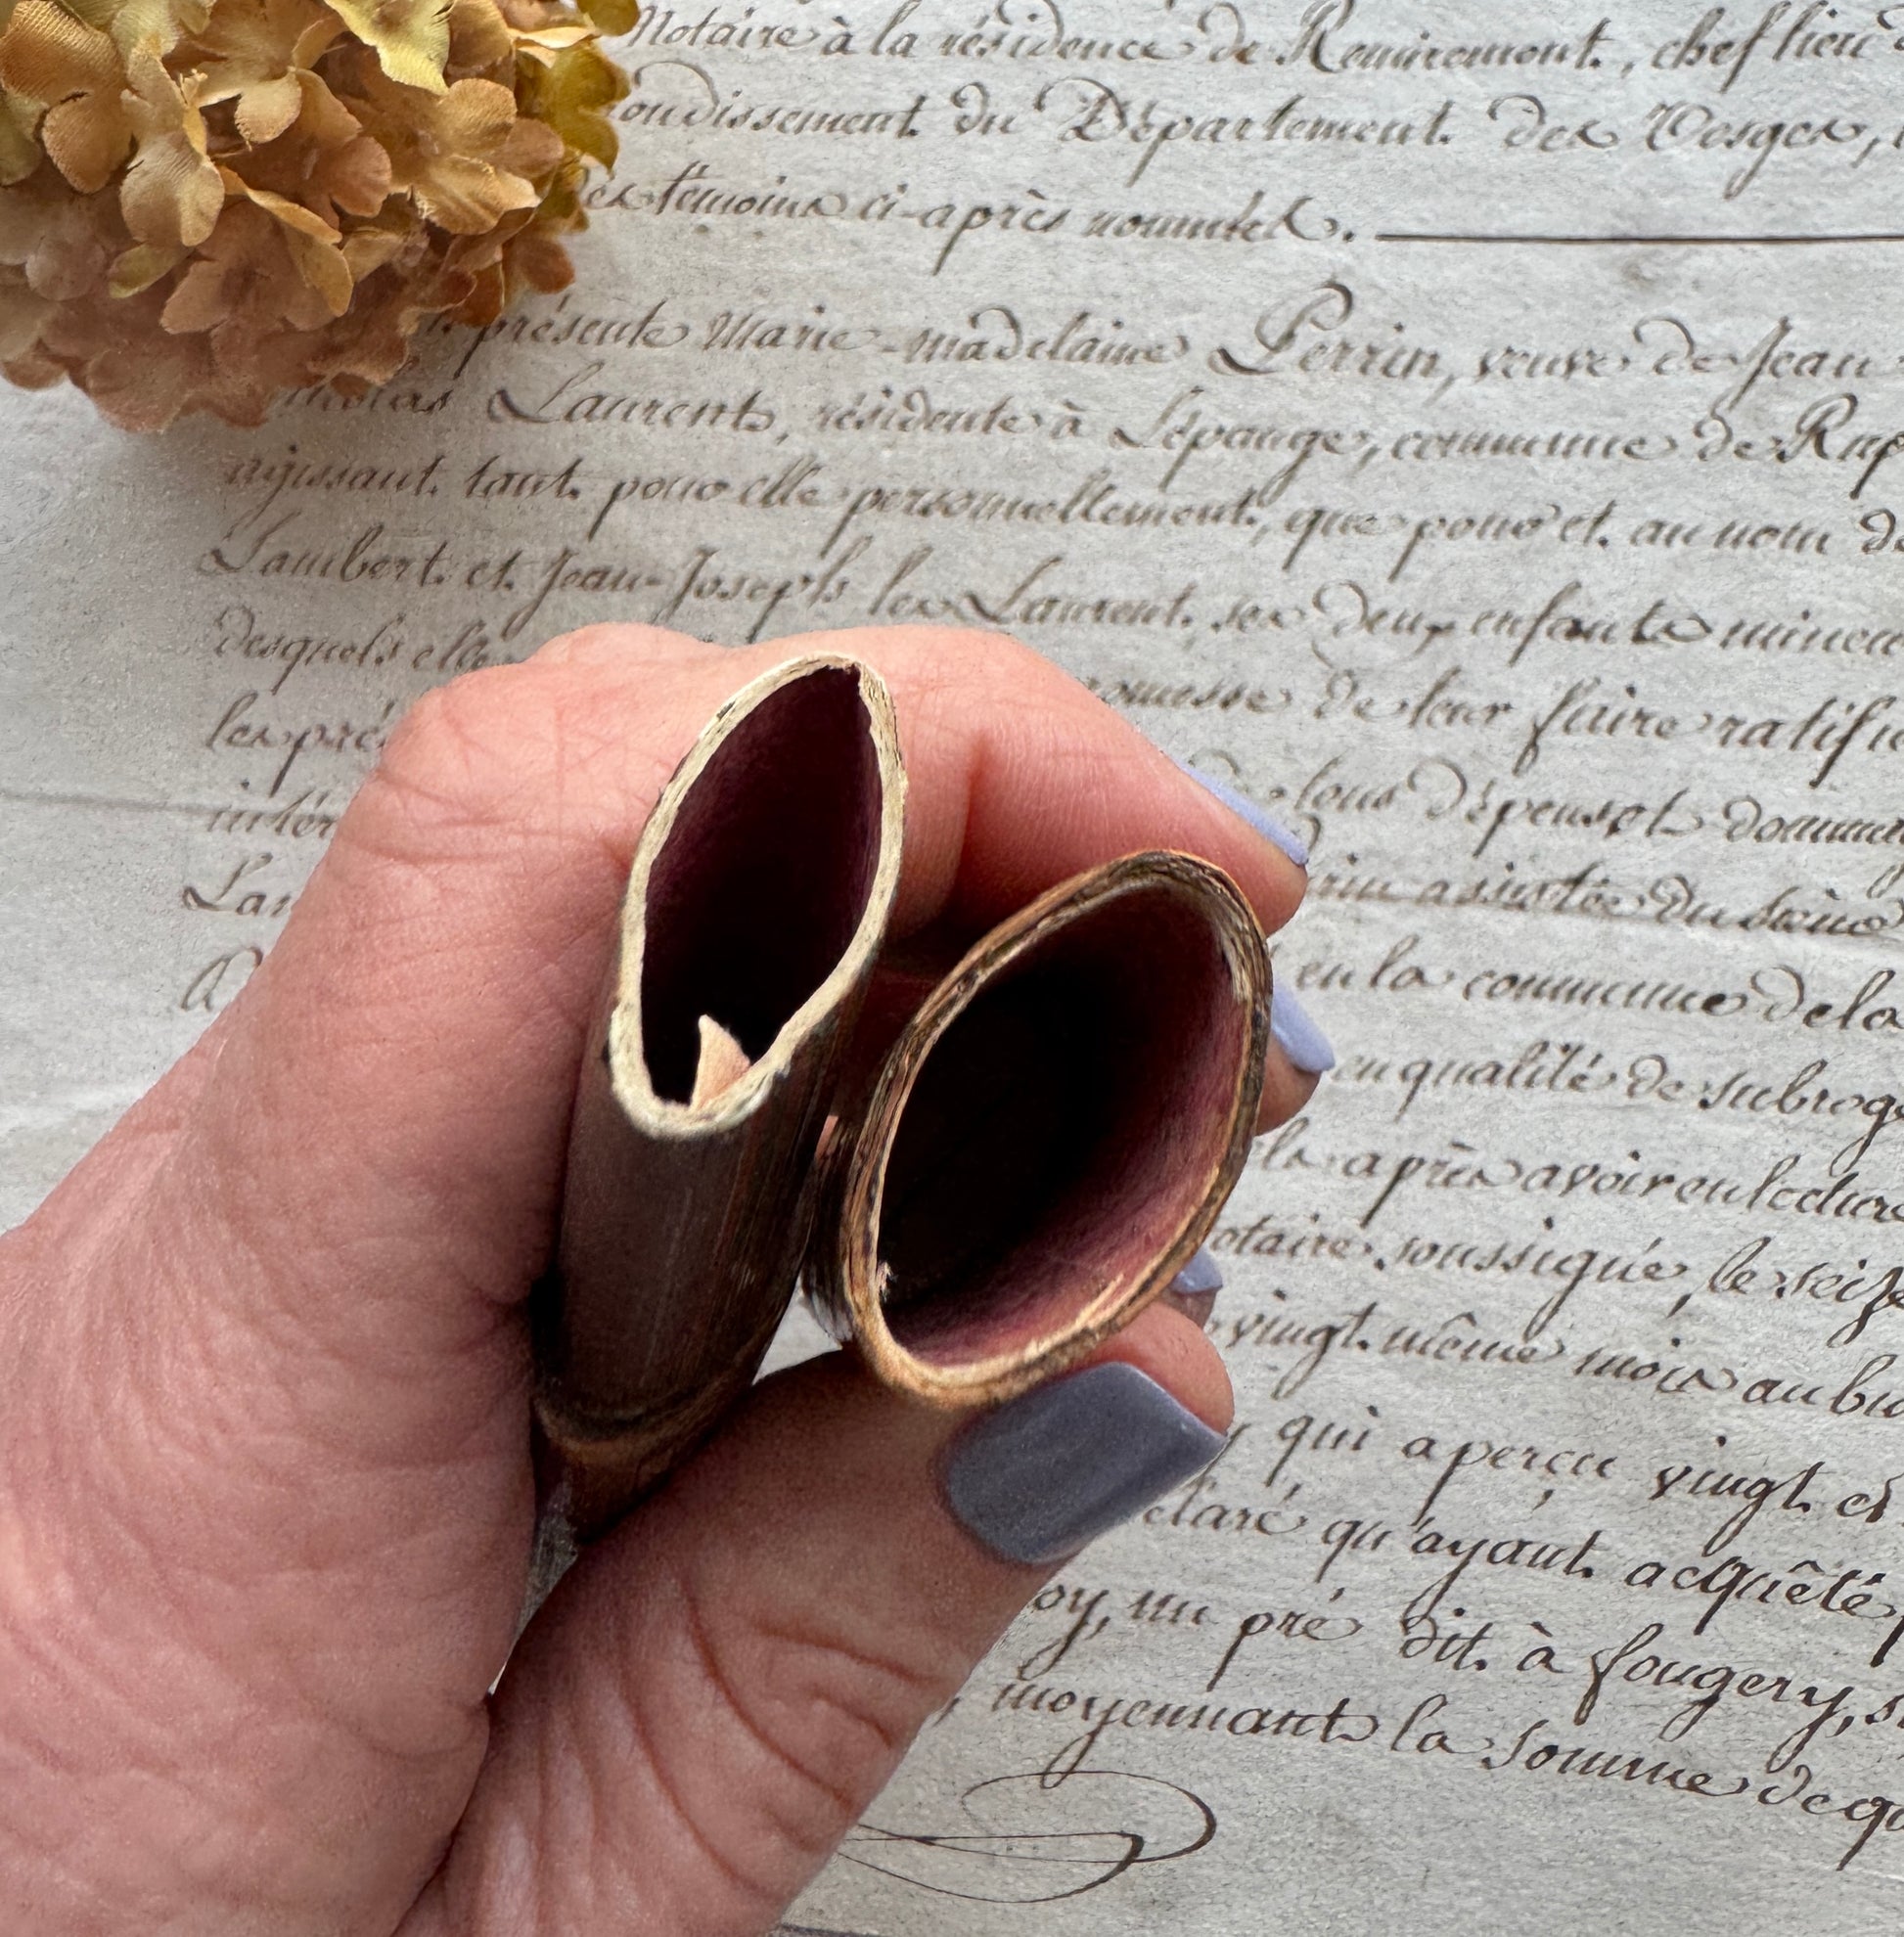 Notaire à la résidence de Remiremont, chef lieu
ondissement du Département des Vosges,
des témoins ci-après nommés.
présente Marie-madelaine Perrin, veuve de Jean
Laurent, résidente à Lépange, commune de Rup
agissant tant pour elle personnellement, que pour et au nom de
Lambert et Jean-Joseph les Laurent ses deux enfants mineu
desquels elle romesse de leur faire ratifie
les pré de tous dépens et domma
intér rin assistée du sieur
Lau en la commune de la
en qualité de subrog
la après avoir eu lecture
otaire soussigné, le seize
vingt même mois au bu
qui a perçu vingt et
claré qu'ayant acquêté
oy, un pré dit à fougery,
moyennant la somme de